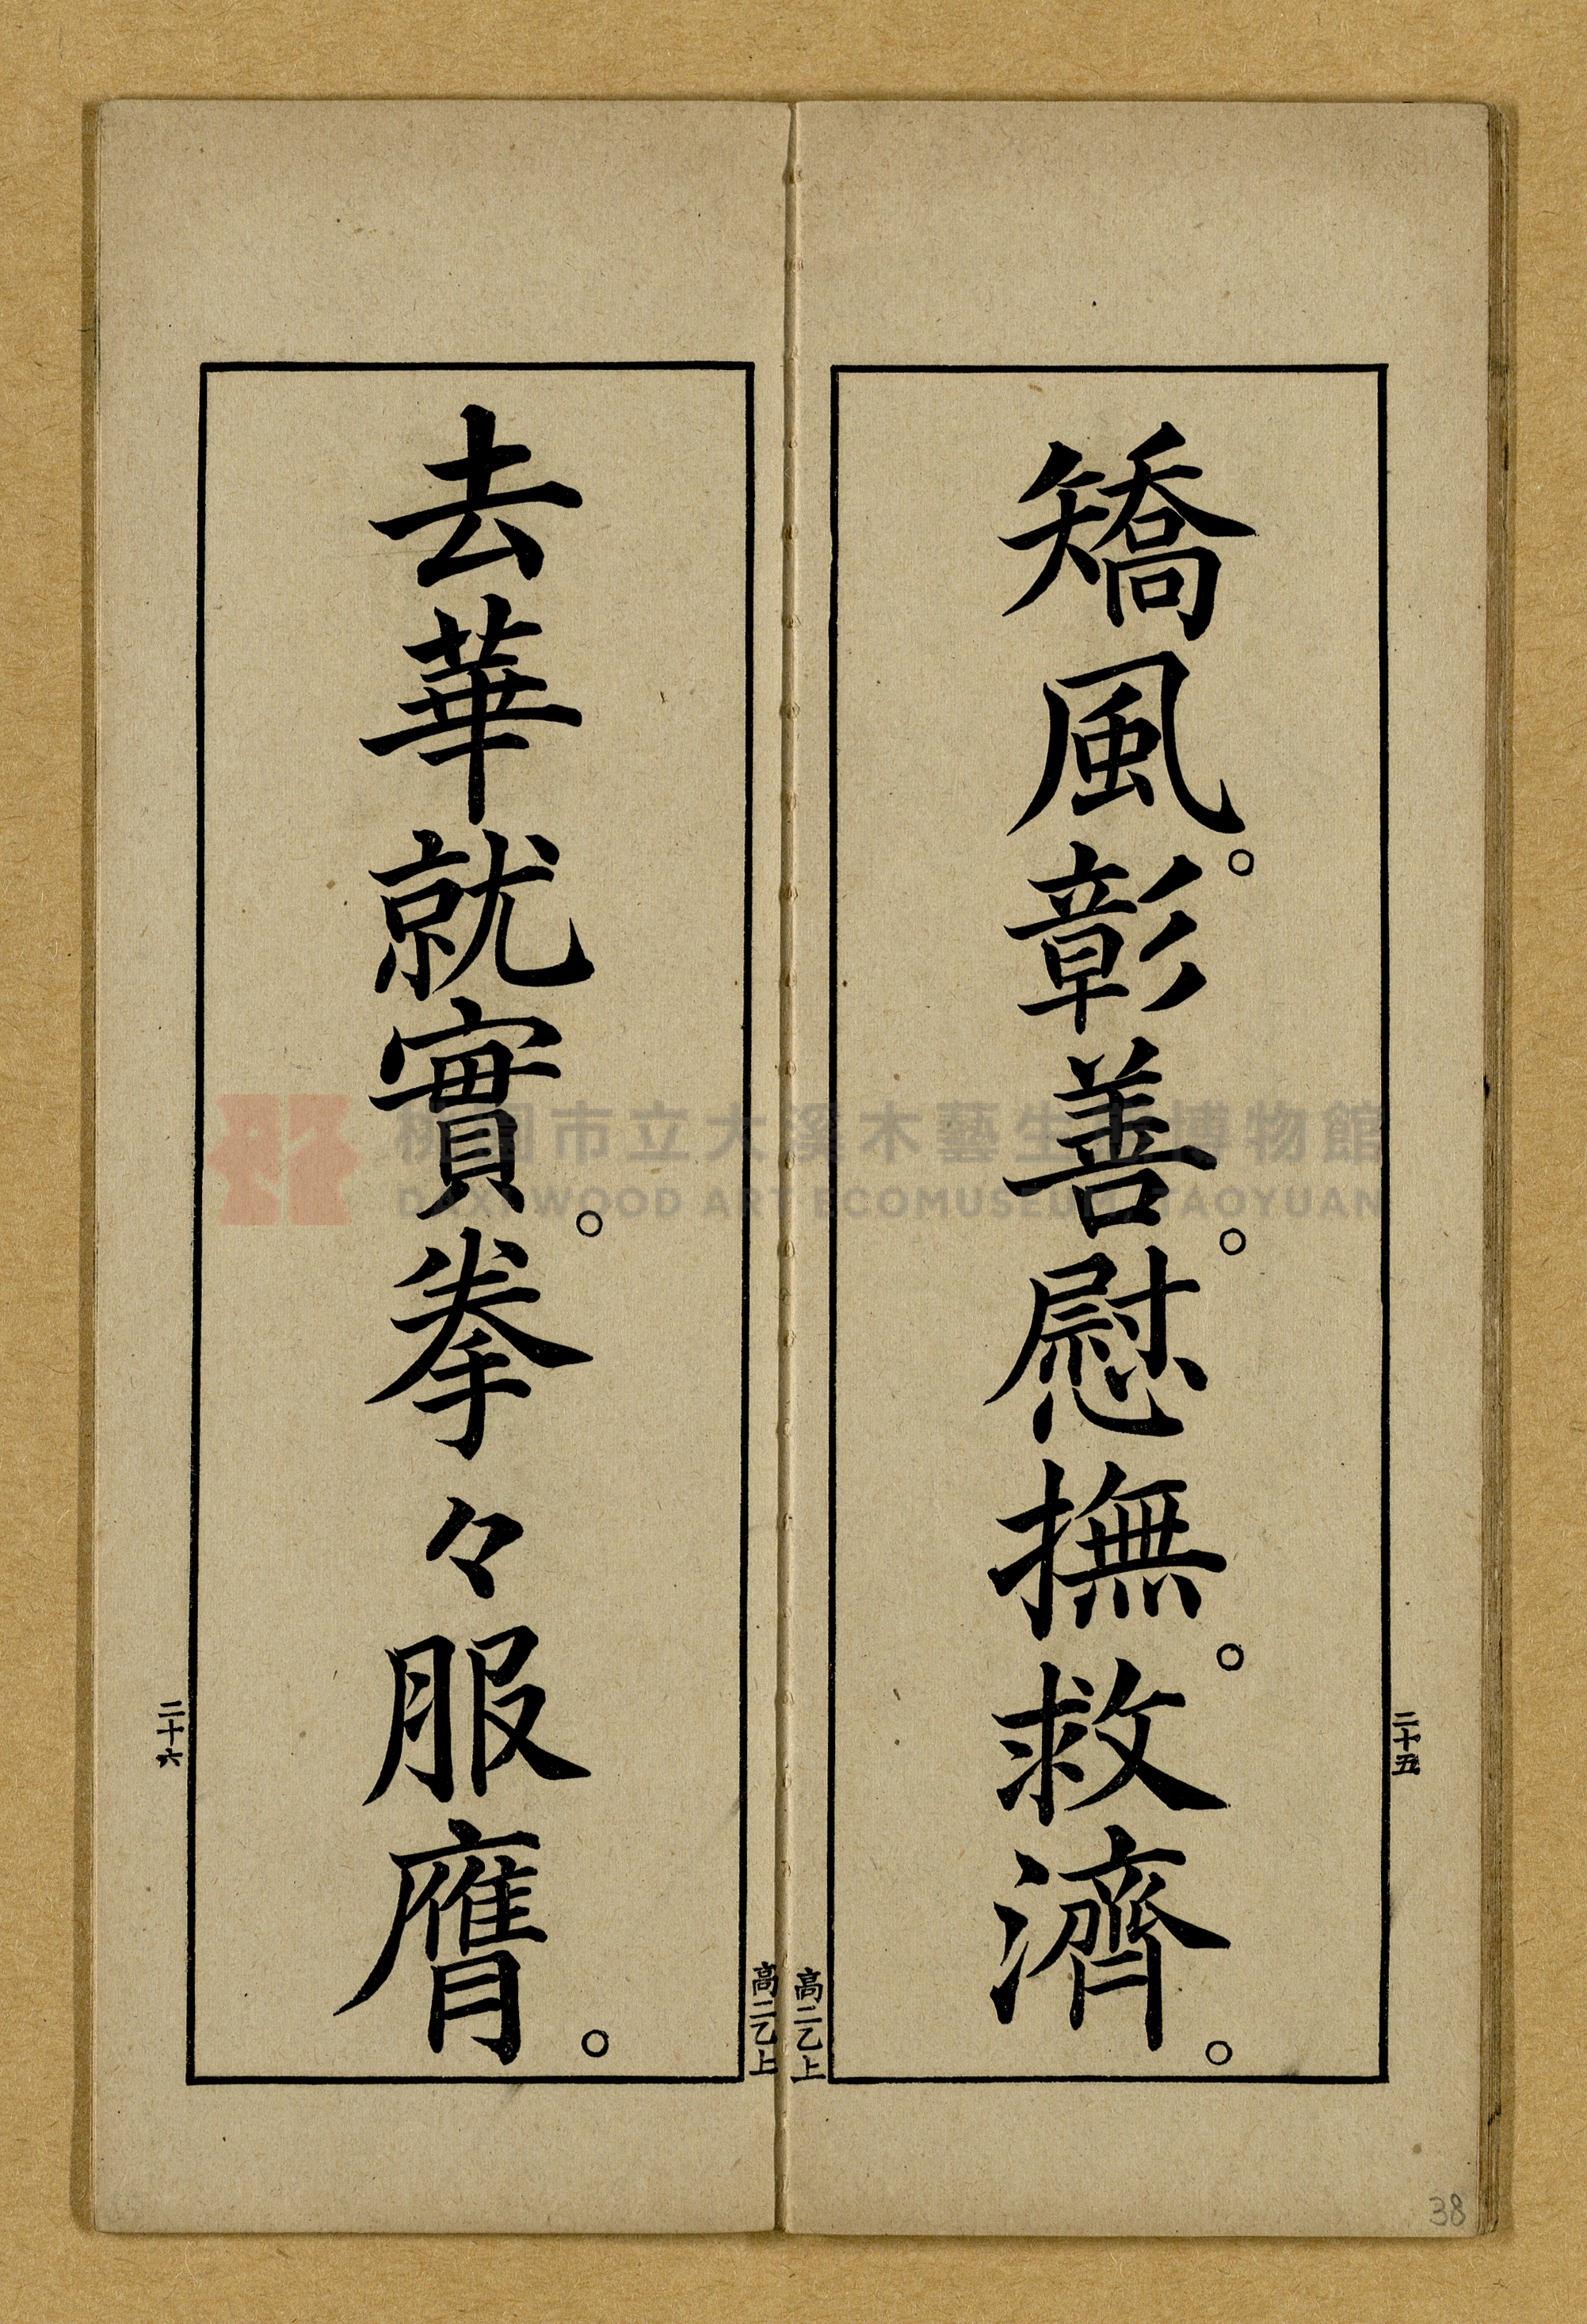 矯風。彰善。慰撫。救濟。
二十五
高二乙上
去華就實。拳々服膺。
二十六
高二乙上
桃園市立大溪木藝生態博物館
DAXI WOOD ART ECOMUSEUM, TAOYUAN
38